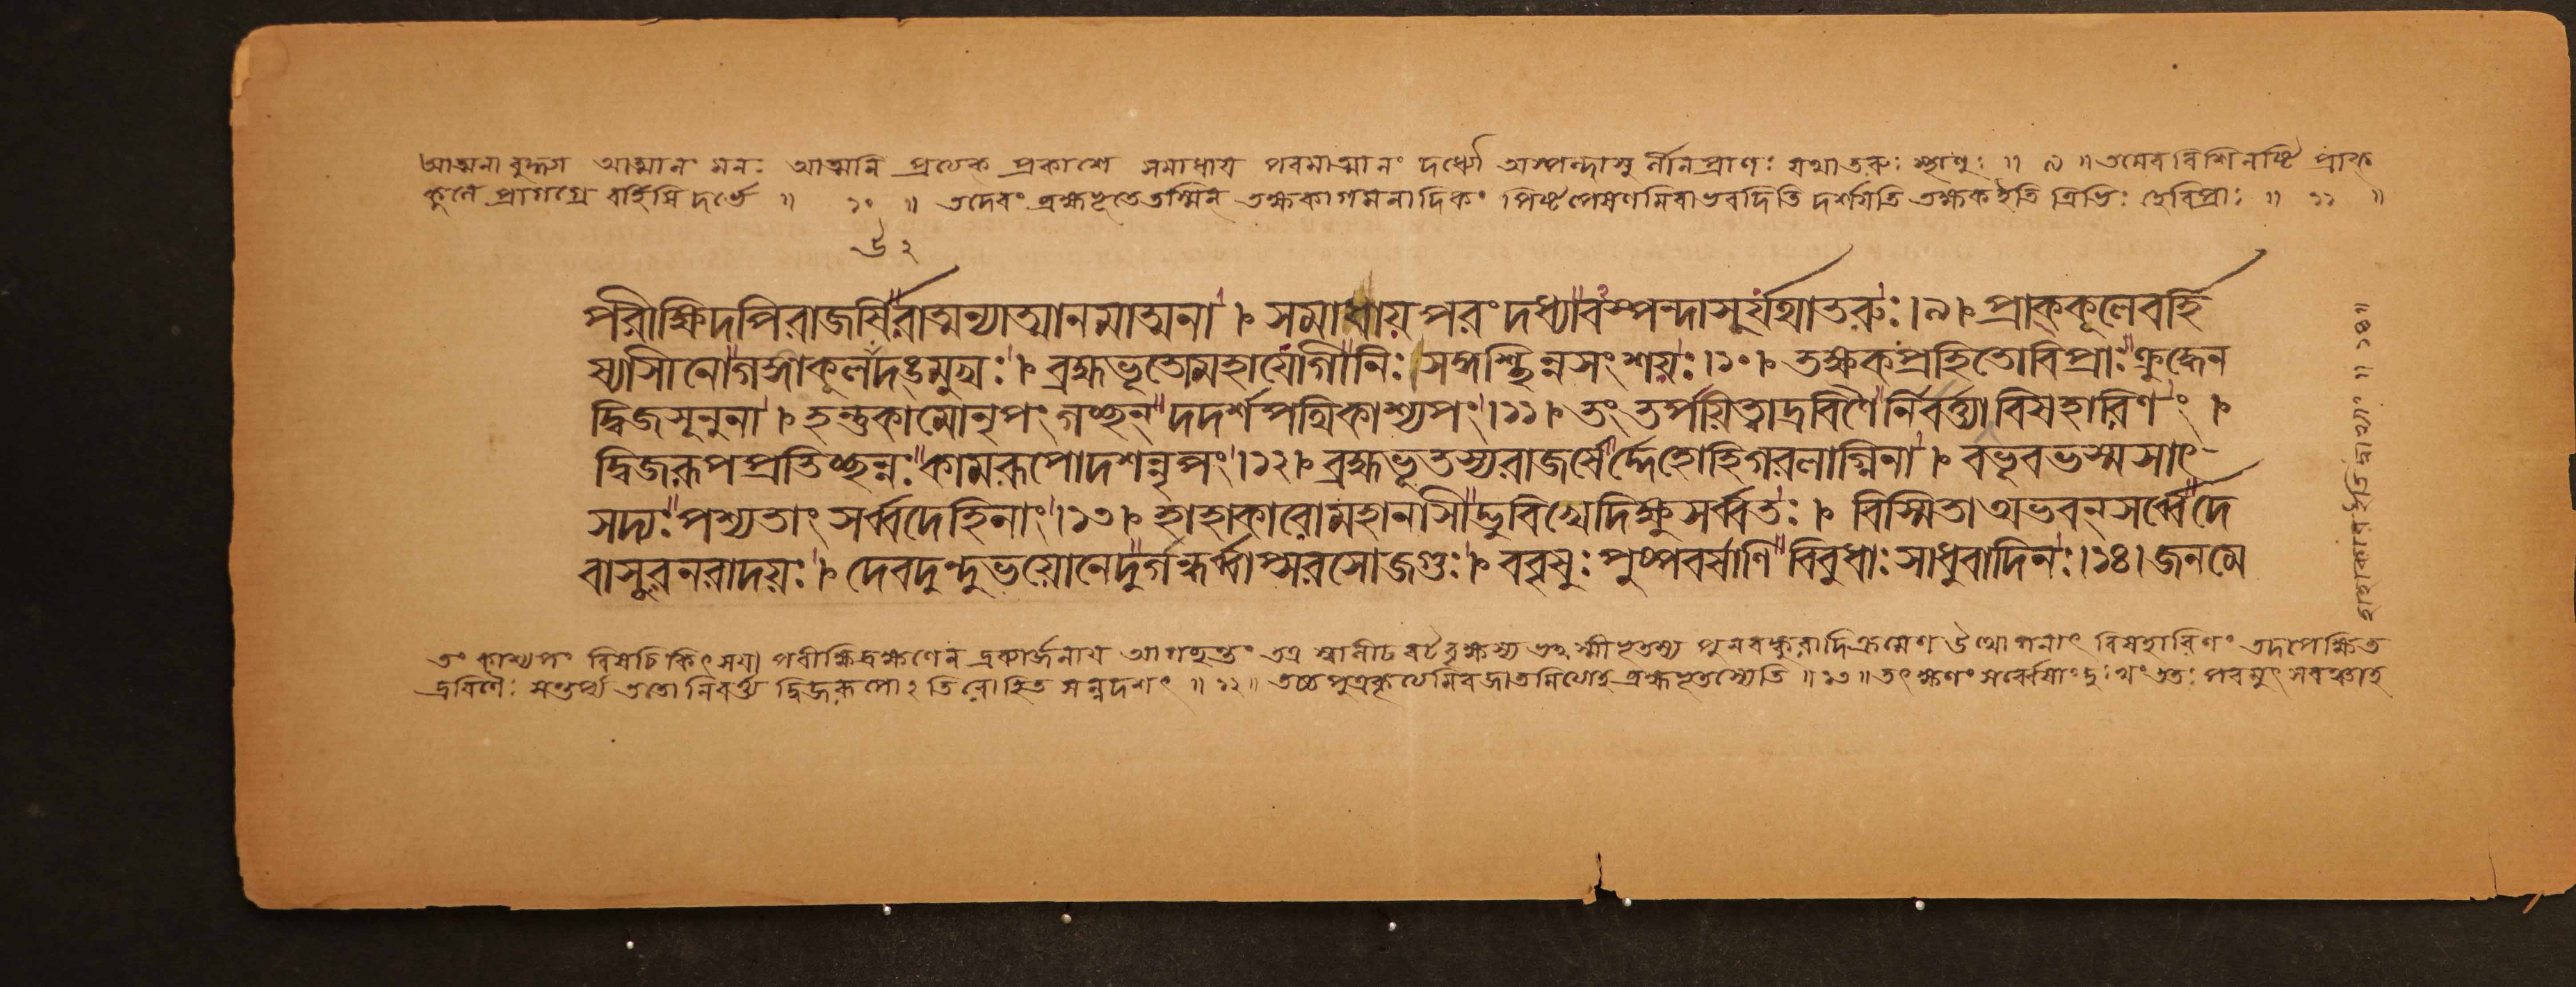 আত্মনা বুদ্ধ্যা আত্মানং মনঃ আত্মনি প্রত্যক্ প্রকাশে সমাধায় পরমাত্মানং দধ্যৌ অস্পন্দাসু র্লীনপ্রাণঃ যথাতরুঃ স্থাণুঃ ॥ ৯ ॥ তমেব বিশিনষ্টি প্রাক্
কূলে প্রাগগ্রে বর্হিষি দর্ভে ॥ ১০ ॥ তদেবং ব্রহ্মভূতেতস্মিন্ তক্ষকাগমনাদিকং পিষ্টপেষণমিবাভবদিতি দর্শয়তি তক্ষকইতি ত্রিভিঃ হেবিপ্রাঃ ॥ ১১ ॥
উ ২
পরীক্ষিদপিরাজর্ষিরাত্মন্যাত্মানমাত্মনা । সমাধায়পরংদধ্যাবস্পন্দাসুর্যথাতরুঃ।৯। প্রাক্কূলেবর্হি
ষ্যাসীনোগঙ্গাকূলউদঙ্মুখঃ । ব্রহ্মভূতোমহাযোগীনিঃসঙ্গশ্ছিন্নসংশয়ঃ।১০। তক্ষকপ্রহিতোবিপ্রাঃক্রুদ্ধেন
দ্বিজসূনুনা । হন্তুকামোনৃপংগচ্ছন্দদর্শপথিকাশ্যপং।১১। তংতর্পয়িত্বাদ্রবিণৈর্নিবর্ত্ত্যবিষহারিণং ।
দ্বিজরূপপ্রতিচ্ছন্নঃকামরূপোদশন্নৃপং।১২। ব্রহ্মভূতস্যরাজর্ষের্দ্দেহোহিগরলাগ্নিনা । বভূবভস্মসাৎ-
সদ্যঃপশ্যতাংসর্ব্বদেহিনাং।১৩। হাহাকারোমহানাসীদ্ভুবিখেদিক্ষুসর্ব্বতঃ । বিস্মিতাঅভবন্সর্ব্বেদে
বাসুরনরাদয়ঃ । দেবদুন্দুভয়োনেদুর্গন্ধর্ব্বাপ্সরসোজগুঃ । ববৃষুঃপুষ্পবর্ষাণিবিবুধাঃসাধুবাদিনঃ।১৪। জনমে
হাহাকার ইতি দ্বাভ্যাং ॥ ১৪॥
তং কাশ্যপং বিষচিকিৎসয়া পরীক্ষিদ্রক্ষণেন আগচ্ছন্তং তত্র বটবৃক্ষস্য পুনরঙ্কুরাদিক্রমেণ বিষহারিণং তদপেক্ষিত
দ্রবিণৈঃ সন্তর্প্য ততো নিবর্ত্ত্য দ্বিজরূপো ২ তিরোহিত সন্নদশৎ ॥ ১২ ॥ ব্রহ্মভূতস্যেতি ॥ ১৩ ॥ তৎ ক্ষণং সর্ব্বেষাং দুঃখং ততঃ